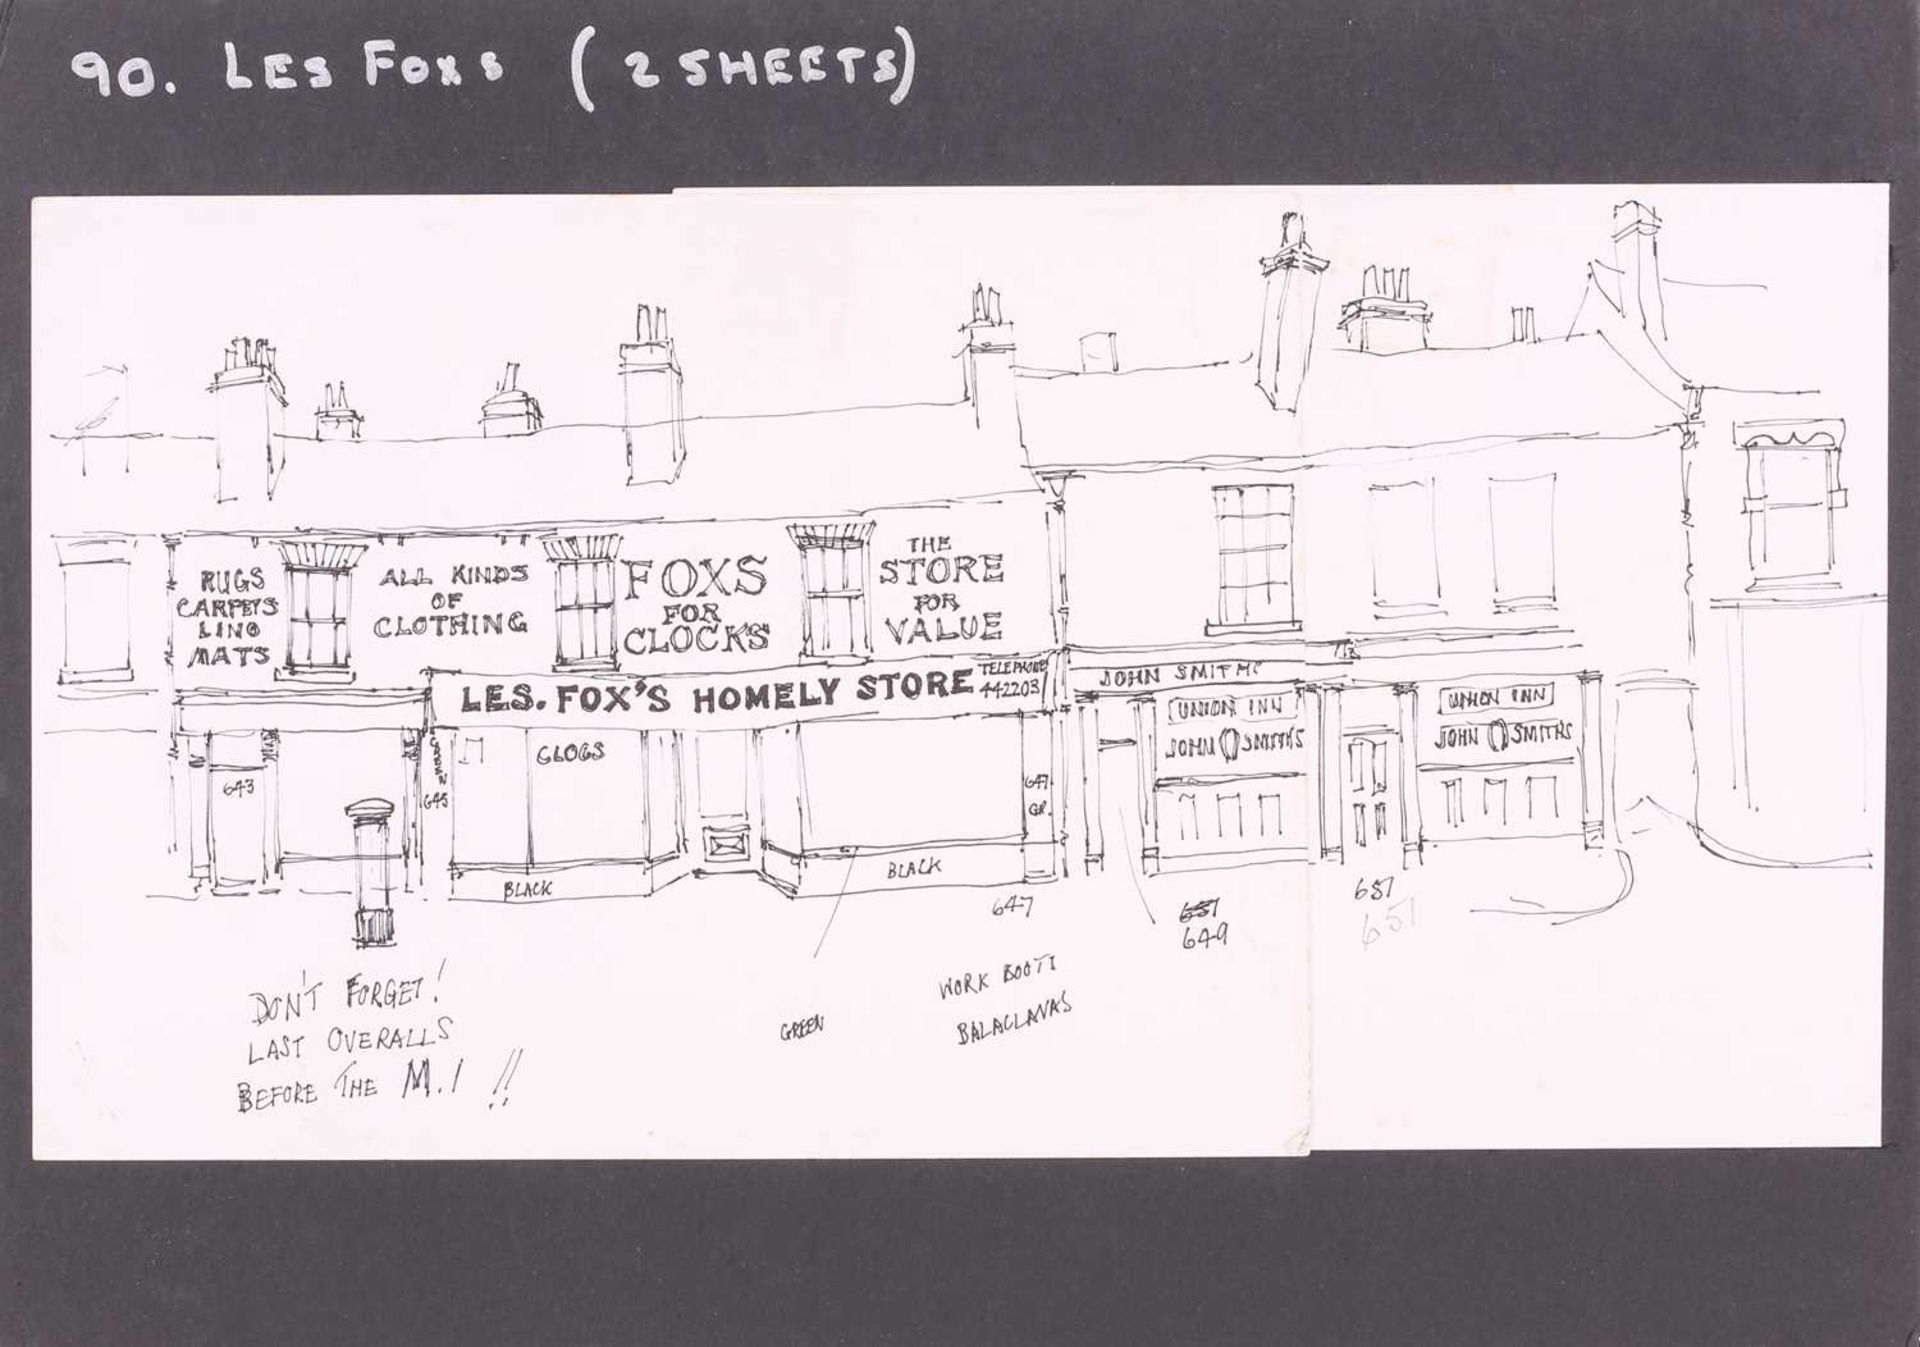 90. LES FOXS (2 SHEETS)
RUGS
CARPETS
LINO
MATS
ALL KINDS
OF
CLOTHING
FOXS
FOR
CLOCKS
THE
STORE
FOR
VALUE
LES. FOX'S HOMELY STORE
TELEPHONE
442203
JOHN SMITHS
UNION INN
JOHN SMITH'S
UNION INN
JOHN SMITH'S
CLOGS
643
645
647
GR.
BLACK
BLACK
647
649
651
651
DON'T FORGET!
LAST OVERALLS
BEFORE THE M.1 !!
GREEN
WORK BOOTS
BALACLAVAS